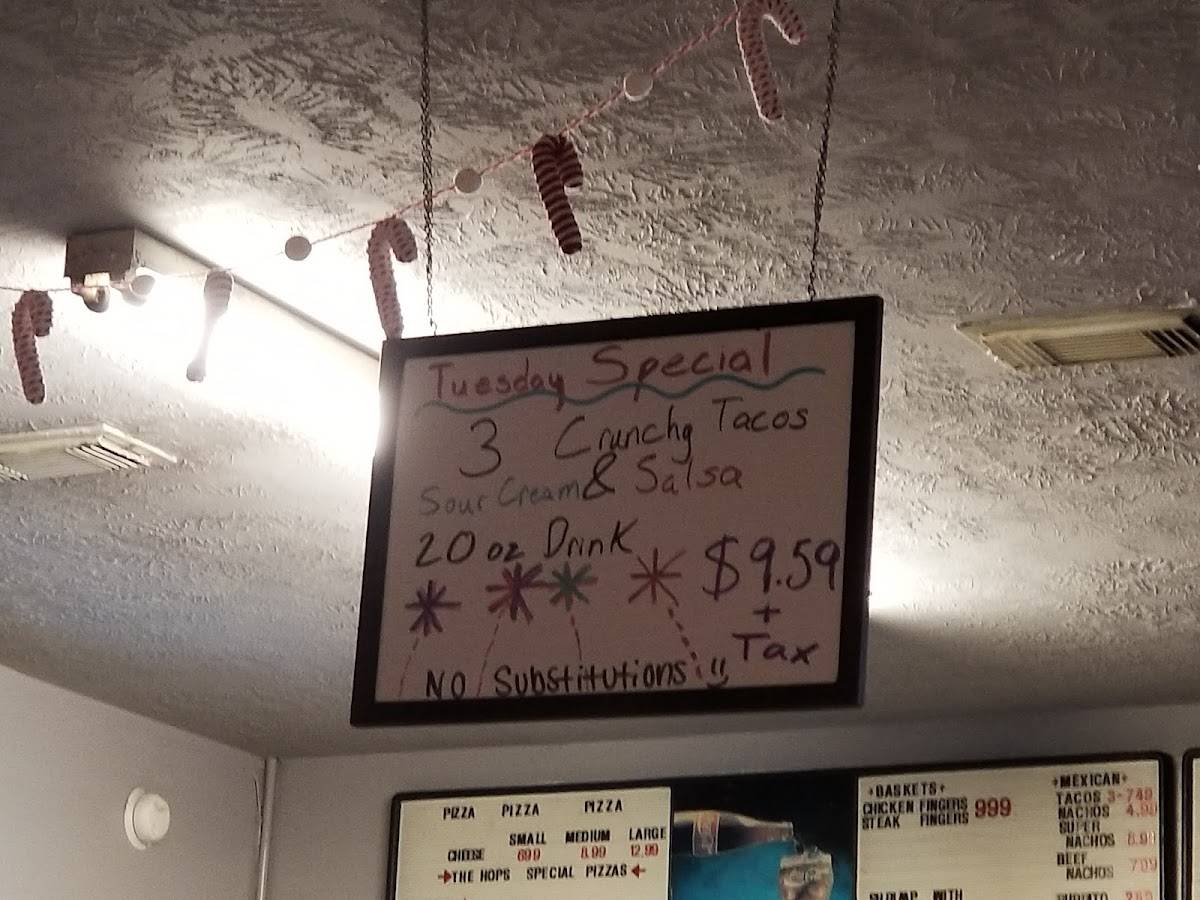 Tuesday Special
3 Crunchy Tacos
Sour Cream & Salsa
20 oz Drink
$9.59
+
Tax
NO Substitutions
PIZZA PIZZA PIZZA
SMALL MEDIUM LARGE
CHEESE 699 8.99 12.99
THE HOPS SPECIAL PIZZAS
+BASKETS+
CHICKEN FINGERS 999
STEAK FINGERS
SHRIMP WITH
+MEXICAN+
TACOS 3-749
NACHOS
SUPER
NACHOS
BEEF
NACHOS